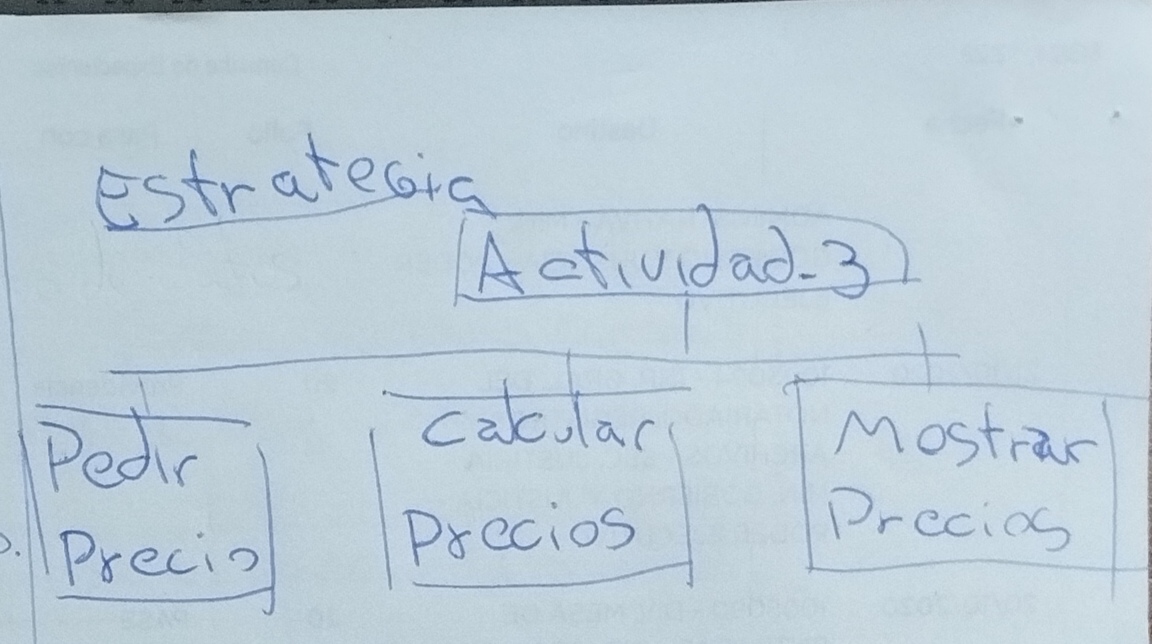 Estrategia
Actividad-3
Pedir
Precio
Calcular
Precios
Mostrar
Precios